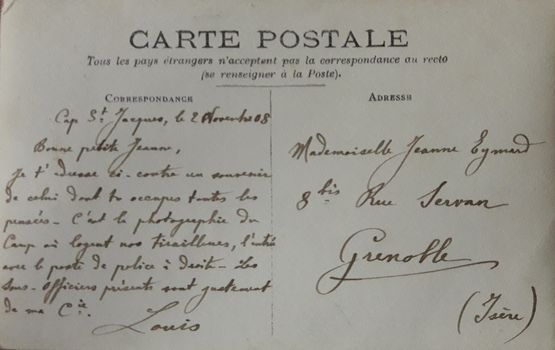 CARTE POSTALE
Tous les pays étrangers n'acceptent pas la correspondance au recto
(se renseigner à la Poste).
CORRESPONDANCE
Cap St. Jacques, le 2 Novembre 08
Bonne petite Jeanne,
Je t'adresse ci-contre un souvenir
de celui dont tu occupes toutes les
pensées - C'est la photographie du
Camp où logent nos tirailleurs, l'entrée
avec le poste de police à droite - Les
sous-officiers présents sont justement
de ma Cie.
Louis
ADRESSE
Mademoiselle Jeanne Eymard
8 bis Rue Servan
Grenoble
(Isère)